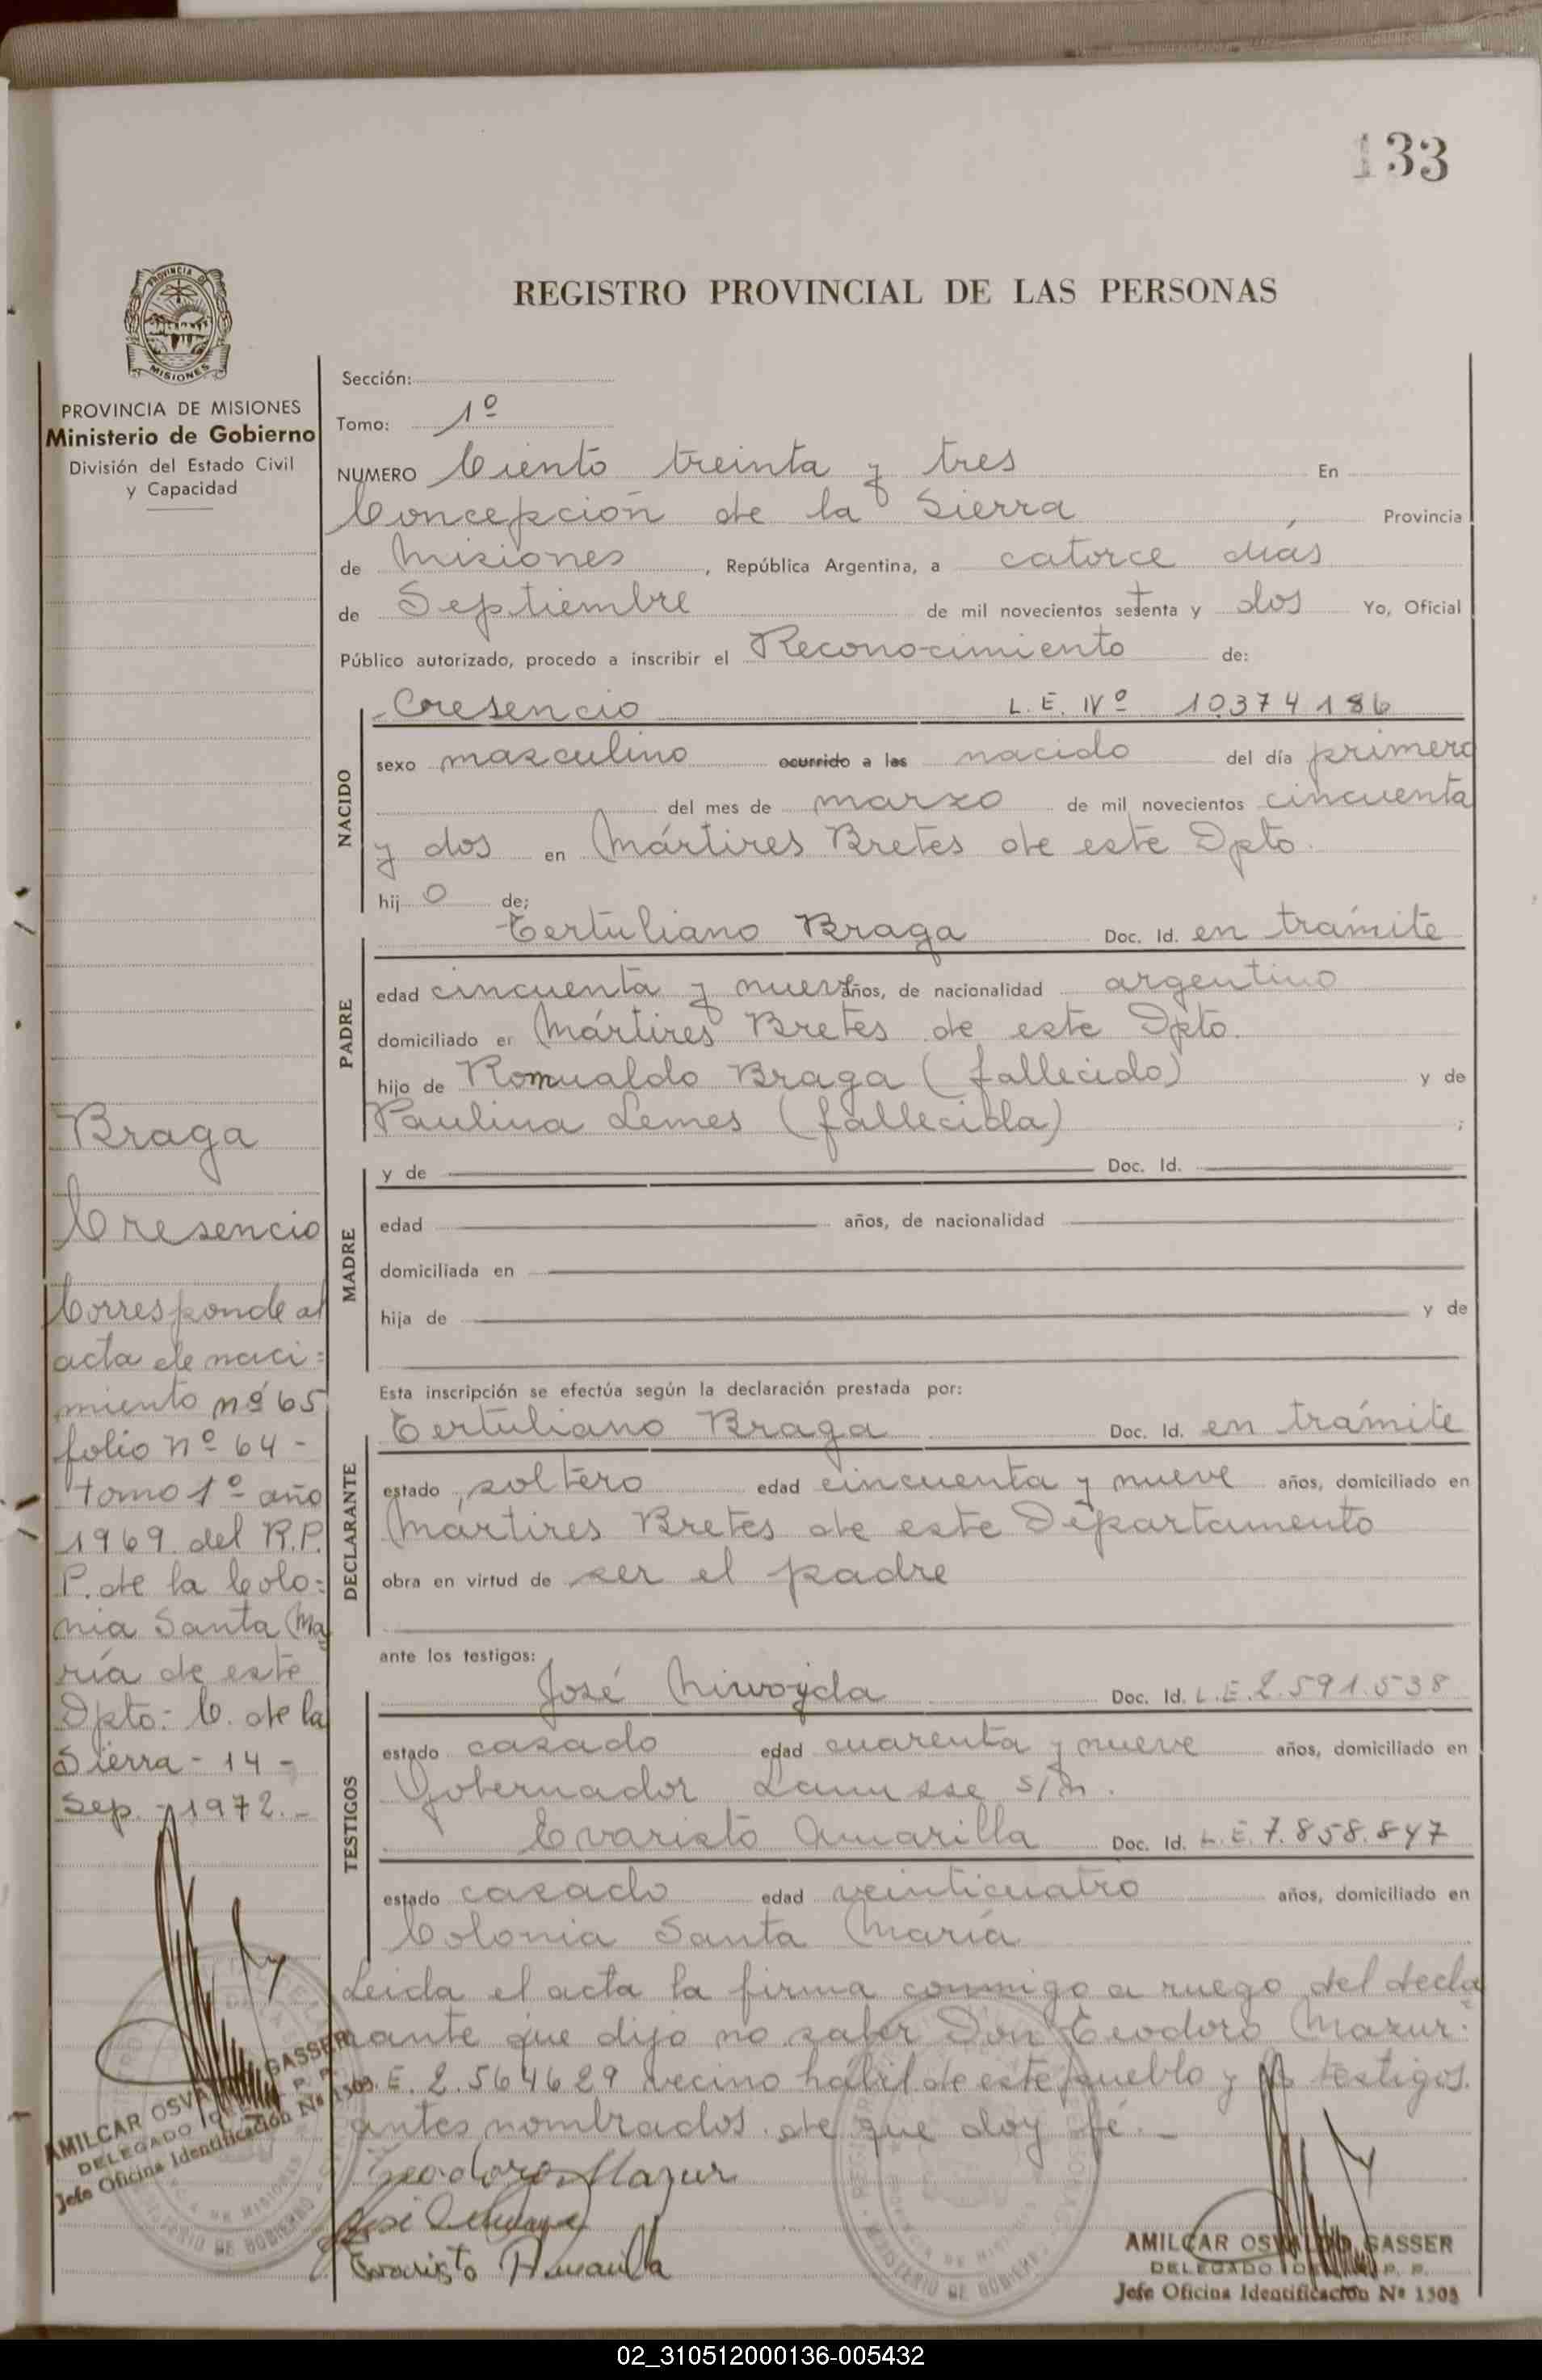 133
REGISTRO PROVINCIAL DE LAS PERSONAS
PROVINCIA DE MISIONES
Ministerio de Gobierno
División del Estado Civil
y Capacidad
Sección:
Tomo: 1º
NUMERO Ciento treinta y tres En
Concepción de la Sierra Provincia
de Misiones, República Argentina, a catorce días
de Septiembre de mil novecientos setenta y dos Yo, Oficial
Público autorizado, procedo a inscribir el Reconocimiento de:
NACIDO
Cresencio L.E. Nº 10374186
sexo masculino ocurrido a las nacido del día primero
del mes de marzo de mil novecientos cincuenta
y dos en Mártires Bretes de este Dpto.
hijo de;
PADRE
Tertuliano Braga Doc. Id. en trámite
edad cincuenta y nueve años, de nacionalidad argentino
domiciliado en Mártires Bretes de este Dpto.
hijo de Romualdo Braga (fallecido) y de
Paulina Lemes (fallecida) ;
MADRE
y de Doc. Id.
edad años, de nacionalidad
domiciliada en
hija de y de
Esta inscripción se efectúa según la declaración prestada por:
DECLARANTE
Tertuliano Braga Doc. Id. en trámite
estado soltero edad cincuenta y nueve años, domiciliado en
Mártires Bretes de este Departamento
obra en virtud de ser el padre
ante los testigos:
TESTIGOS
José Doc. Id. L.E. 2.591.538
estado casado edad cuarenta y nueve años, domiciliado en
Gobernador Lanusse s/n.
Evaristo Amarilla Doc. Id. L.E. 7.858.847
estado casado edad veinticuatro años, domiciliado en
Colonia Santa María
Leida el acta la firma conmigo a ruego del decla
rante que dijo no saber Don Teodoro Mazur.
L.E. 2.564629 vecino hábil de este pueblo y testigos
antes nombrados. de que doy fé.-
Teodoro Mazur
José
Evaristo Amarilla
AMILCAR OSVALDO GASSER
DELEGADO DEL R. P. P.
Jefe Oficina Identificación Nº 1503
Braga
Cresencio
Corresponde al
acta de naci=
miento nº 65
folio nº 64 -
tomo 1º año
1969 del R.P.
P. de la Colo=
nia Santa Ma
ría de este
Dpto.- C. de la
Sierra - 14 -
Sep. - 1972.-
AMILCAR OSVALDO GASSER
DELEGADO DEL R. P. P.
Jefe Oficina Identificación Nº 1503
02_310512000136-005432